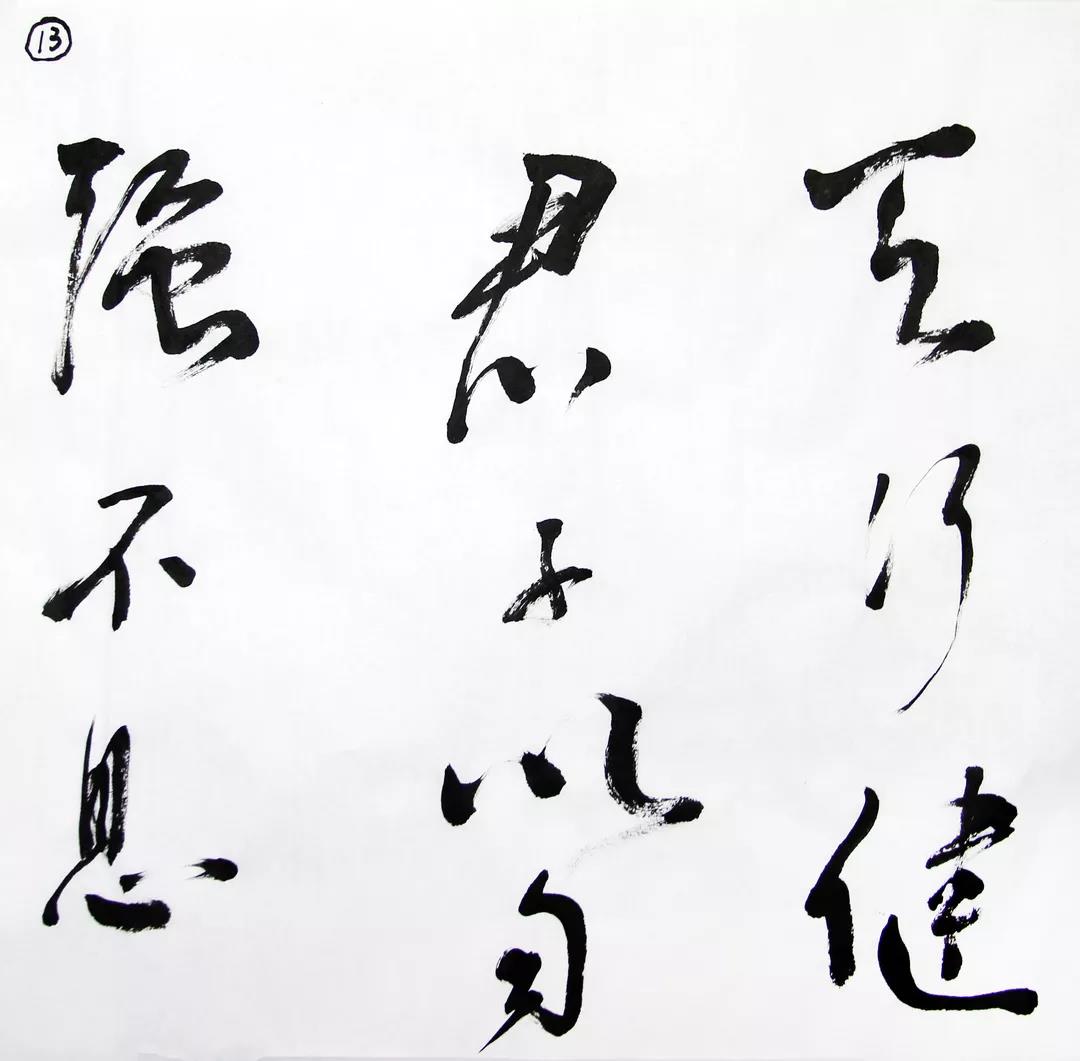 ⑬
天行健
君子以自
强不息